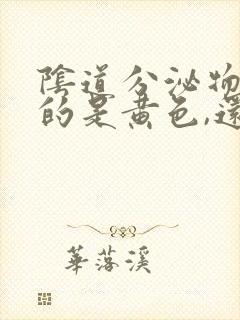 陰道分泌物
的是黃色,還
華落溪